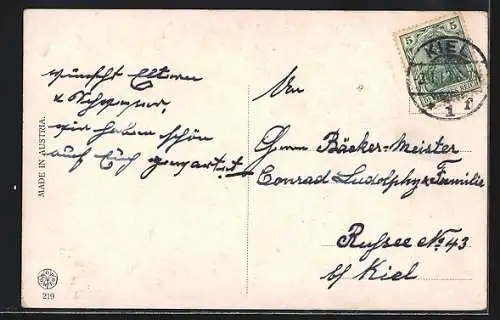 wünscht Eltern
& Schwester,
wir haben schön
auf Euch gewartet
An
Herrn Bäcker-Meister
Conrad Ludolphy & Familie
Russee No. 43
b/ Kiel
MADE IN AUSTRIA.
219
5 5
DEUTSCHES REICH
KIEL
1 f